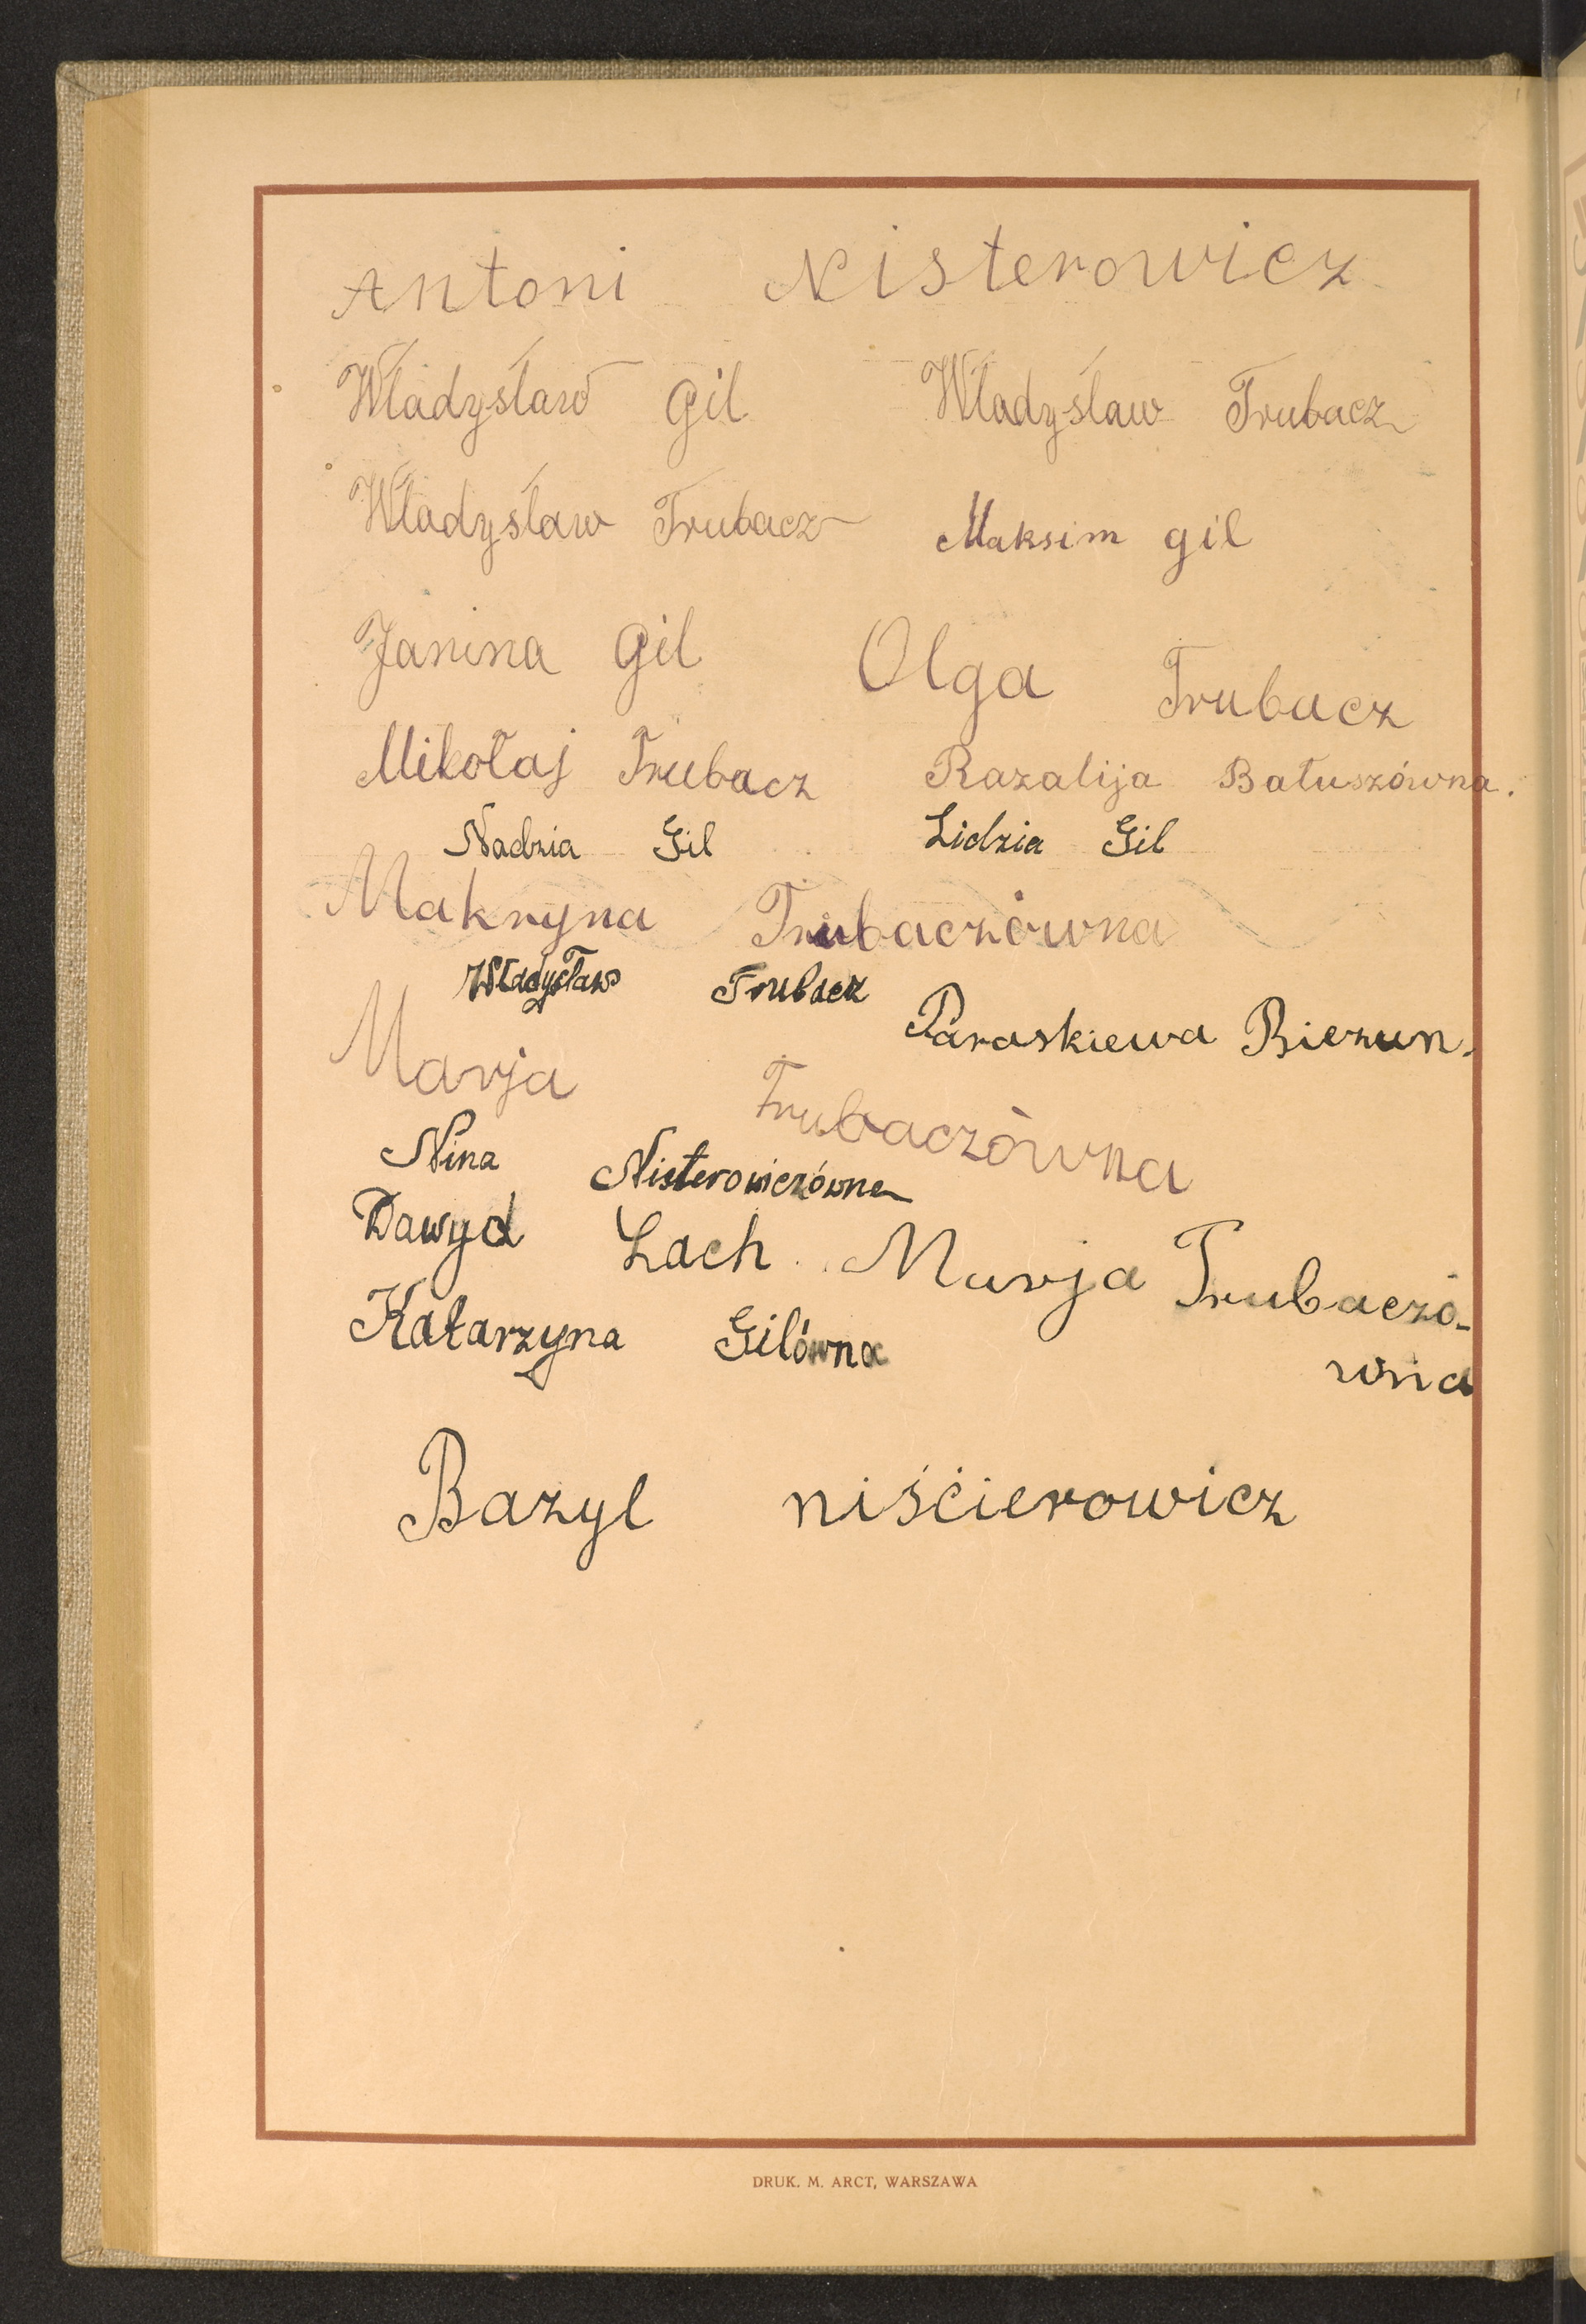 Antoni Nisterowicz
Władysław Gil Władysław Trubacz
Władysław Trubacz Maksim gil
Janina Gil Olga Trubacz
Mikołaj Trubacz Razalija Batuszówna.
Nadzia Gil Lidzia Gil
Makryna Trubaczówna
Władysław Trubacz
Paraskiewa Biezun.
Marja Trubaczówna
Nina Nisterowiczówna
Dawyd Lach Marja Trubaczó-
wna
Katarzyna Gilówna
Bazyl niśćierowicz
DRUK. M. ARCT, WARSZAWA